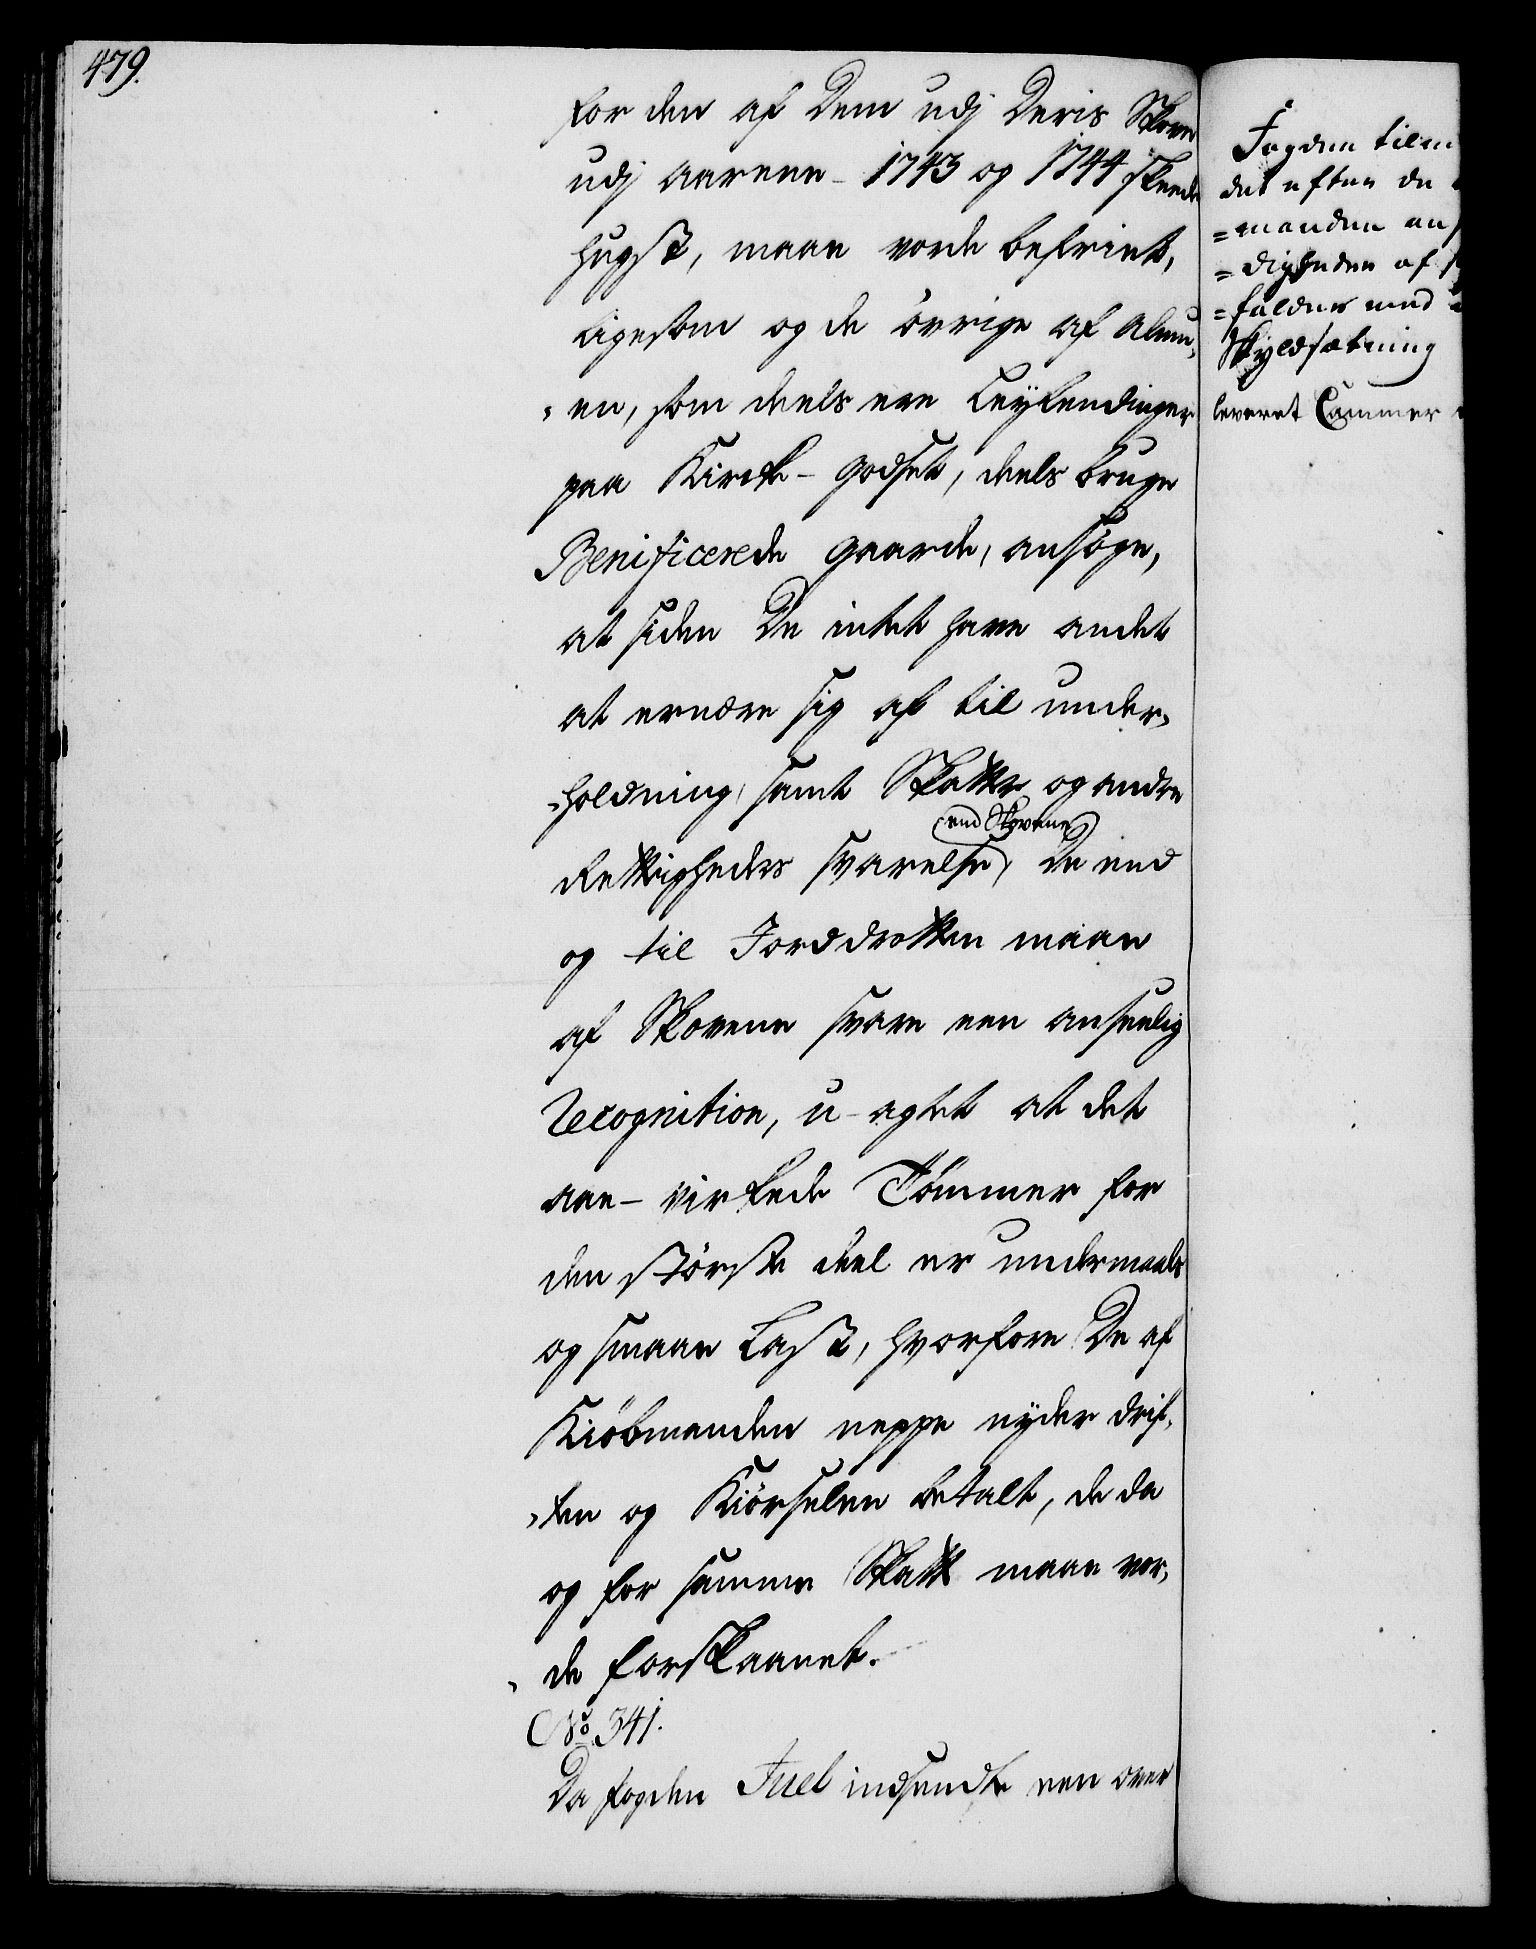 479.
for den af Dem udj Deris Skove
udj aarene 1743 og 1744 skeede
hugst, maae vorde befriet,
ligesom og de övrige af Almu-
-en, som deels ere Leylendinger
paa Kircke-godset, deels bruge
Benificerede gaarde, ansöge,
at siden De intet have andet
at ernære sig af til under-
-holdning, samt Skatters og andre
(end Skovene)
Rettigheders svarelse, De end
og til Jorddrotten maae
af Skovene svare een anseelig
Recognition, u-agtet at det
aar-virkede Tömmer for
den störste deel er undermaals
og smaae Last, hvorfore De af
Kiöbmanden neppe nyder drif-
-ten og Kiörselen betalt, de da
og for samme Skatt maae vor-
de forskaanet.
No. 341.
Da fogden Juel indsendte een over
Fogden
det efter de
=manden an
=digheden af
=falder med
Skyldsætning
leveret Cammer